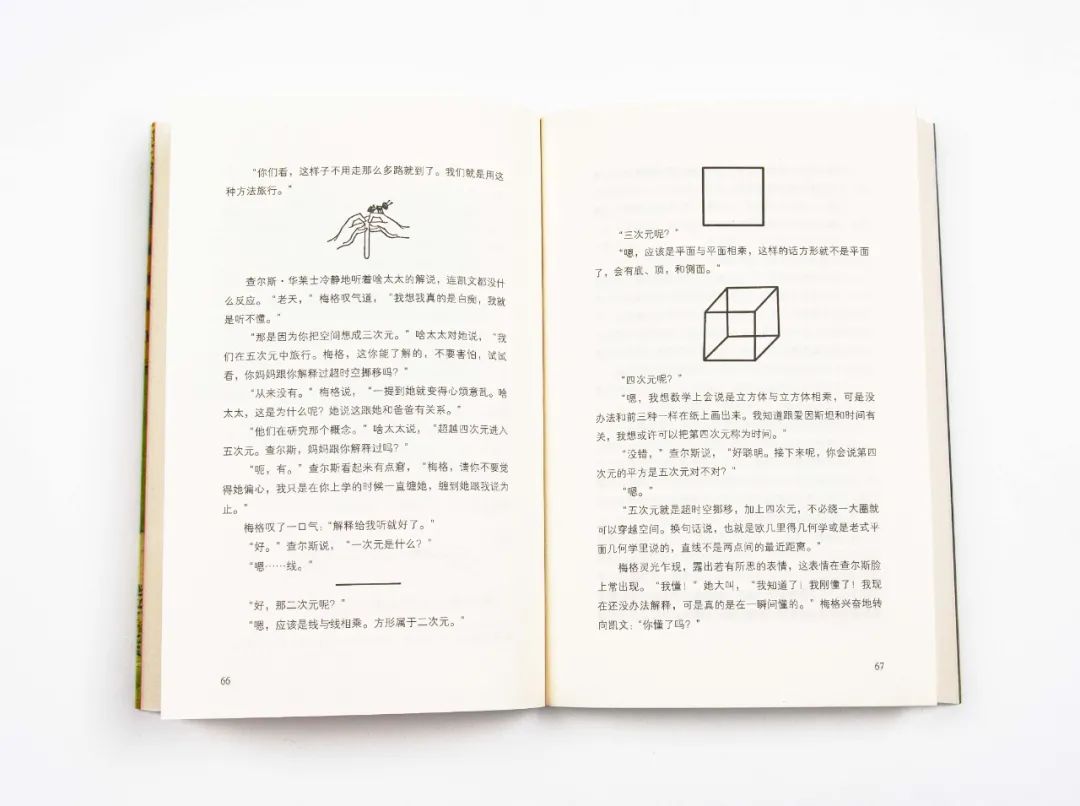 “你们看，这样子不用走那么多路就到了。我们就是用这
种方法旅行。”
查尔斯·华莱士冷静地听着啥太太的解说，连凯文都没什
么反应。“老天，”梅格叹气道，“我想我真的是白痴，我就
是听不懂。”
“那是因为你把空间想成三次元。”啥太太对她说，“我
们在五次元中旅行。梅格，这你能了解的，不要害怕，试试
看，你妈妈跟你解释过超时空挪移吗？”
“从来没有。”梅格说，“一提到她就变得心烦意乱。啥
太太，这是为什么呢？她说这跟她和爸爸有关系。”
“他们在研究那个概念。”啥太太说，“超越四次元进入
五次元。查尔斯，妈妈跟你解释过吗？”
“呃，有。”查尔斯看起来有点窘，“梅格，请你不要觉
得她偏心，我只是在你上学的时候一直缠她，缠到她跟我说为
止。”
梅格叹了一口气：“解释给我听就好了。”
“好。”查尔斯说，“一次元是什么？”
“嗯……线。”
“好，那二次元呢？”
“嗯，应该是线与线相乘。方形属于二次元。”
66
“三次元呢？”
“嗯，应该是平面与平面相乘，这样的话方形就不是平面
了，会有底、顶，和侧面。”
“四次元呢？”
“嗯，我想数学上会说是立方体与立方体相乘，可是没
办法和前三种一样在纸上画出来。我知道跟爱因斯坦和时间有
关，我想或许可以把第四次元称为时间。”
“没错，”查尔斯说，“好聪明。接下来呢，你会说第四
次元的平方是五次元对不对？”
“嗯。”
“五次元就是超时空挪移，加上四次元，不必绕一大圈就
可以穿越空间。换句话说，也就是欧几里得几何学或是老式平
面几何学里说的，直线不是两点间的最近距离。”
梅格灵光乍现，露出若有所思的表情，这表情在查尔斯脸
上常出现。“我懂！”她大叫，“我知道了！我刚懂了！我现
在还没办法解释，可是真的是在一瞬间懂的。”梅格兴奋地转
向凯文：“你懂了吗？”
67